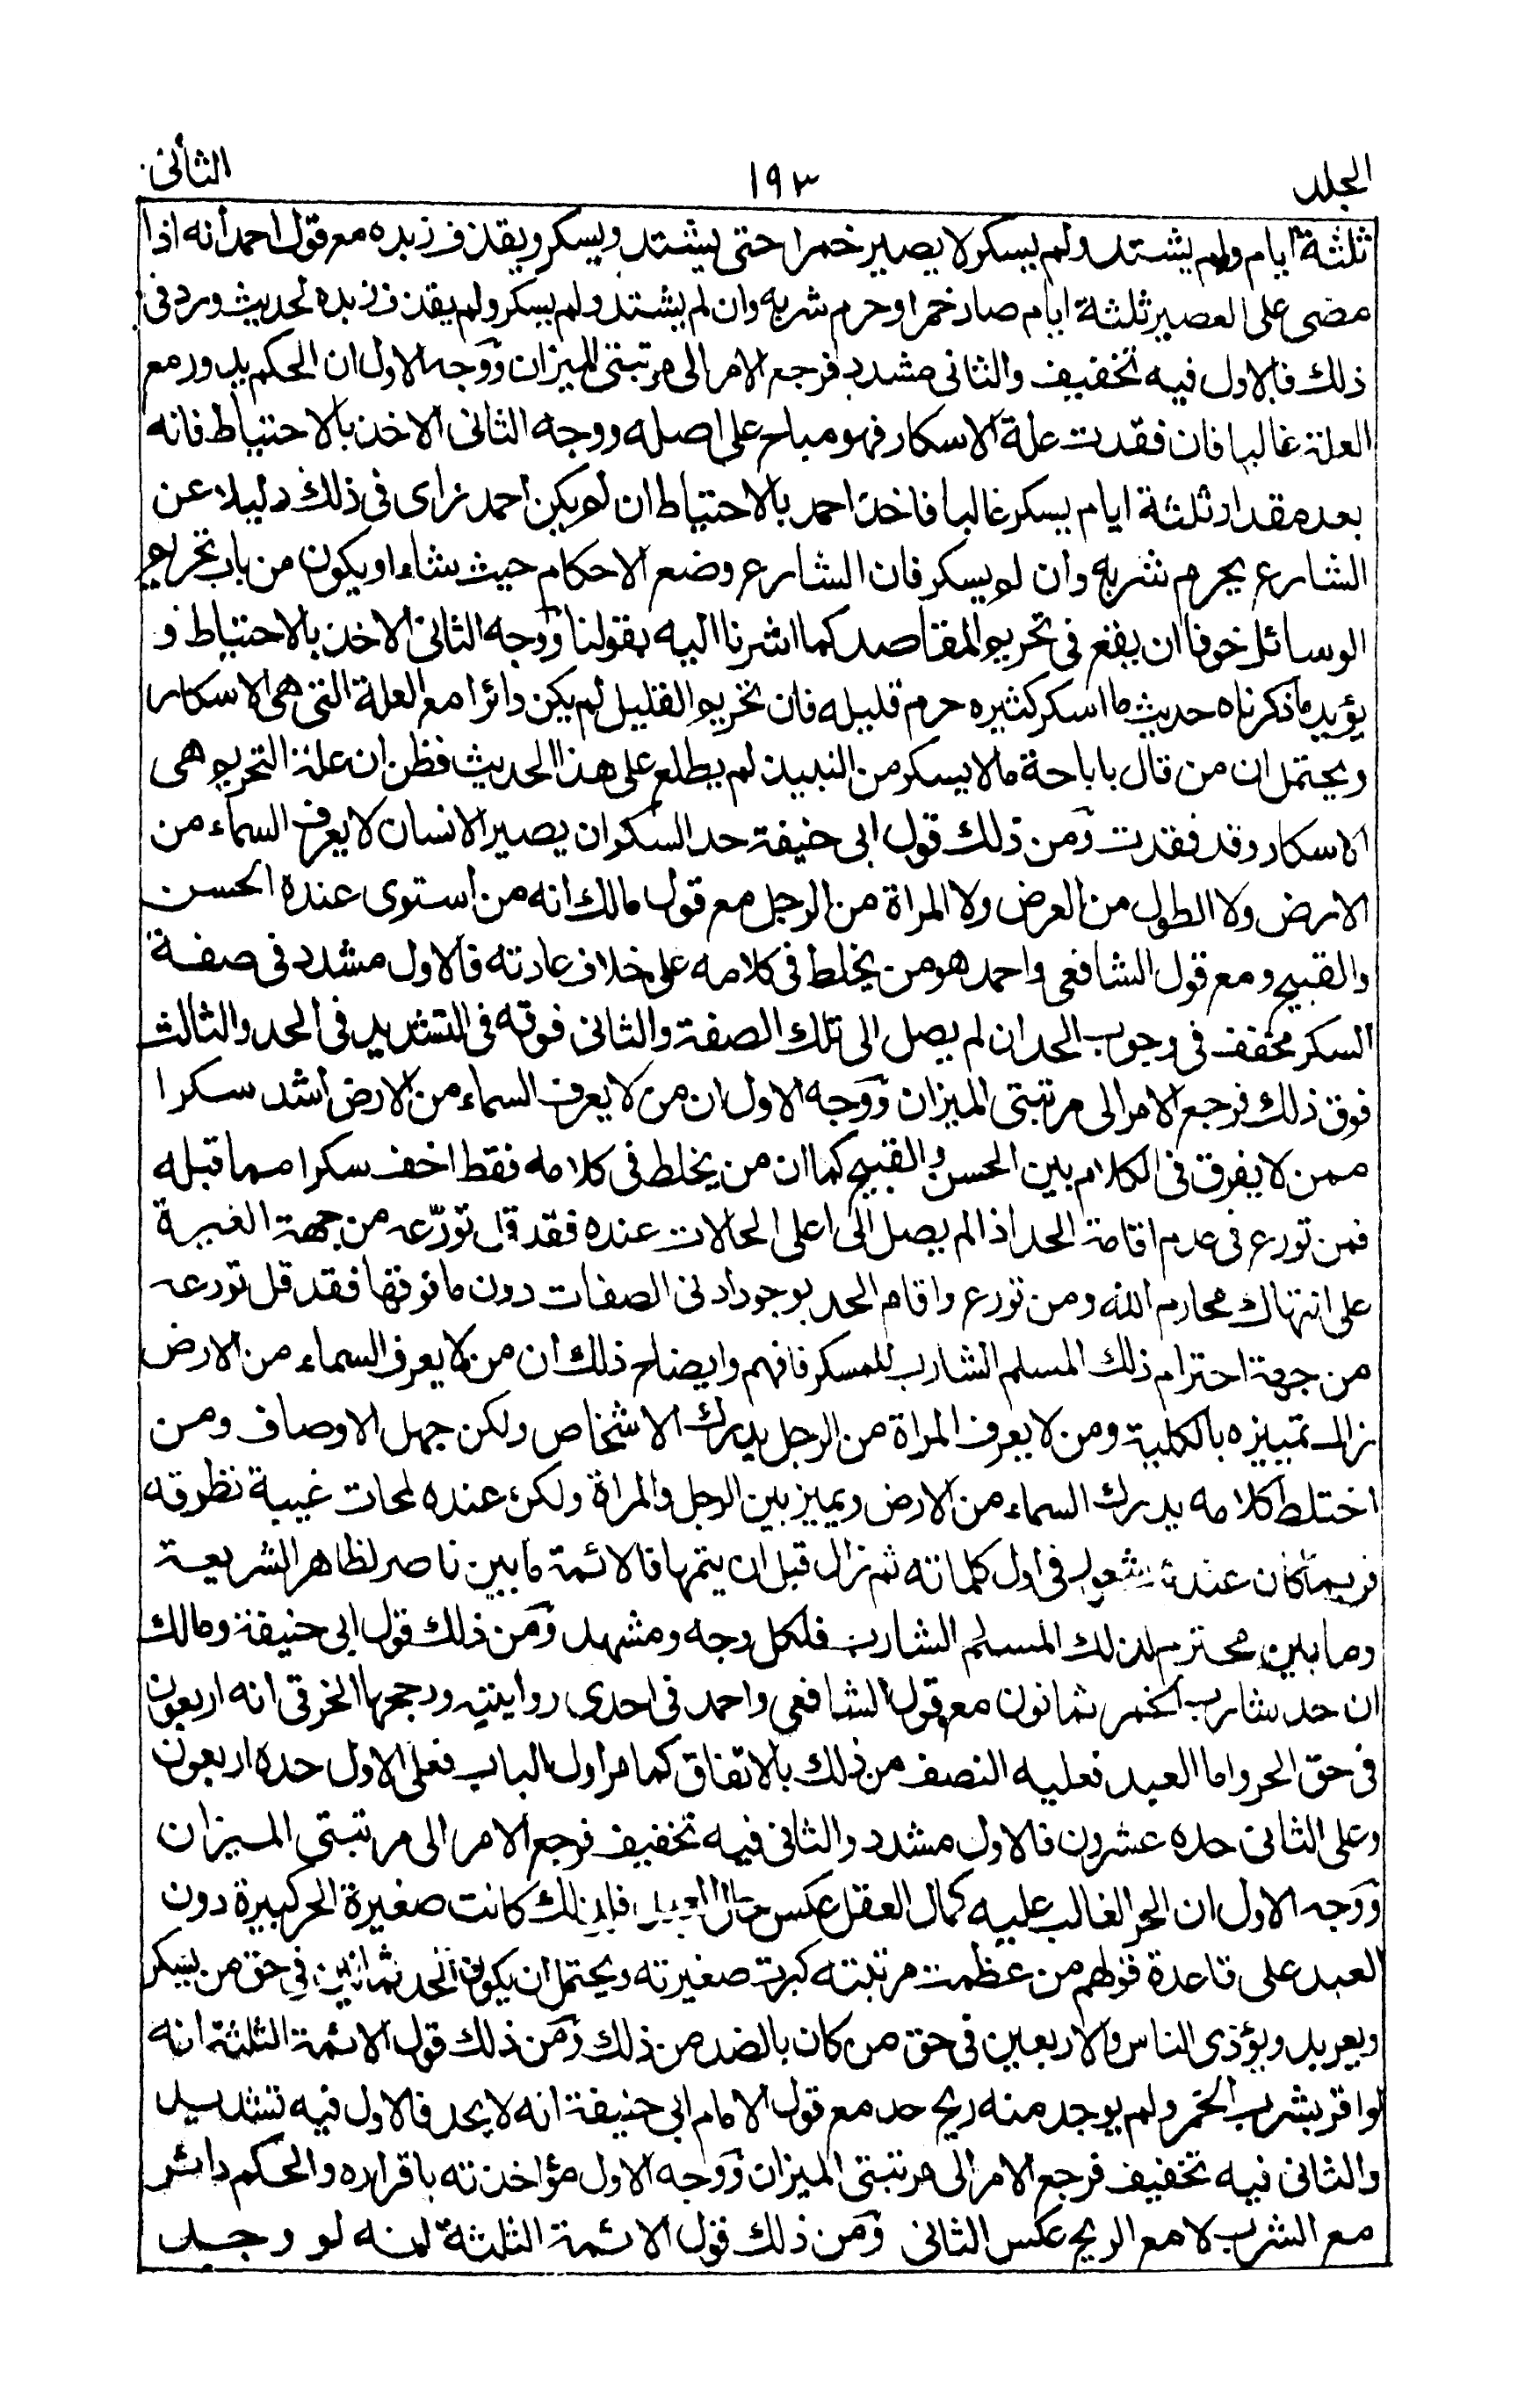 الجلد ١٩٣ الثانى
ثلثة ايام ولم يشتد ولم يسكر لا يصير خمرا حتى يشتد ويسكر ويقذف زبده مع قول احمد انه اذا
مضى على العصير ثلثة ايام صار خمرا وحرم شربه وان لم يشتد ولم يسكر ولم يقذف زبده لحديث ورد فى
ذلك فالاول فيه تخفيف والثانى مشدد فرجع الامر الى مرتبتى الميزان ووجه الاول ان الحكم يدور مع
العلة غالبا فان فقدت علة الاسكار فهو مباح على اصله ووجه الثانى الاخذ بالاحتياط فانه
بعد مقدار ثلثة ايام يسكر غالبا فاخذ احمد بالاحتياط ان لم يكن احمد راى فى ذلك دليلا عن
الشارع يحرم شربه وان لم يسكر فان الشارع وضع الاحكام حيث شاء او يكون من باب تحريم
الوسائل خوفا ان يقع فى تحريم المقاصد كما اشرنا اليه بقولنا ووجه الثانى الاخذ بالاحتياط و
يؤيد ما ذكرناه حديث ما اسكر كثيره حرم قليله فان تحريم القليل لم يكن دائرا مع العلة التى هى الاسكار
ويحتمل ان من قال باباحة ما لا يسكر من النبيذ لم يطلع على هذا الحديث فظن ان علة التحريم هى
الاسكار وقد فقدت ومن ذلك قول ابى حنيفة حد السكر ان يصير الانسان لا يعرف السماء من
الارض ولا الطول من العرض ولا المراة من الرجل مع قول مالك انه من استوى عنده الحسن
والقبيح ومع قول الشافعى واحمد هو من يخلط فى كلامه على خلاف عادته فالاول مشدد فى صفة
السكر مخفف فى وجوب الحد ان لم يصل الى تلك الصفة والثانى فوقه فى التشديد فى الحد والثالث
فوق ذلك فرجع الامر الى مرتبتى الميزان ووجه الاول ان من لا يعرف السماء من الارض اشد سكرا
ممن لا يفرق فى الكلام بين الحسن والقبيح كما ان من يخلط فى كلامه فقط اخف سكرا مما قبله
فمن تورع فى عدم اقامة الحد اذا لم يصل الى اعلى الحالات عنده فقد قل تورّعه من جهة الغيرة
على انتهاك محارم الله ومن تورع واقام الحد بوجود ادنى الصفات دون ما فوقها فقد قل تورعه
من جهة احترام ذلك المسلم الشارب للمسكر فافهم وايضاح ذلك ان من لا يعرف السماء من الارض
زال تمييزه بالكلية ومن لا يعرف المراة من الرجل يدرك الاشخاص ولكن جهل الاوصاف ومن
اختلط كلامه يدرك السماء من الارض ويميز بين الرجل والمراة ولكن عنده لمحات غيبة تطرقه
فربما كان عنده شعور فى اول كلماته ثم زال قبل ان يتمها فالائمة ما بين ناصر لظاهر الشريعة
وما بين محترم لذلك المسلم الشارب فلكل وجه ومشهد ومن ذلك قول ابى حنيفة ومالك
ان حد شارب الخمر ثمانون مع قول الشافعى واحمد فى احدى روايتيه ورجحها الخرقى انه اربعون
فى حق الحر واما العبد فعليه النصف من ذلك بالاتفاق كما مر اول الباب فعلى الاول حده اربعون
وعلى الثانى حده عشرون فالاول مشدد والثانى فيه تخفيف فرجع الامر الى مرتبتى الميزان
ووجه الاول ان الحر الغالب عليه كمال العقل عكس حال العبيد فلذلك كانت صغيرة الحر كبيرة دون
العبد على قاعدة قولهم من عظمت مرتبته كبرت صغيرته ويحتمل ان يكون الحد ثمانين فى حق من يسكر
ويعربد ويؤذى الناس والاربعين فى حق من كان بالضد من ذلك ومن ذلك قول الائمة الثلثة انه
لو اقر بشرب الخمر ولم يوجد منه ريح حد مع قول الامام ابى حنيفة انه لا يحد فالاول فيه تشديد
والثانى فيه تخفيف فرجع الامر الى مرتبتى الميزان ووجه الاول مؤاخذته باقراره والحكم دائر
مع الشرب لا مع الريح عكس الثانى ومن ذلك قول الائمة الثلثة لمنه لو وجد